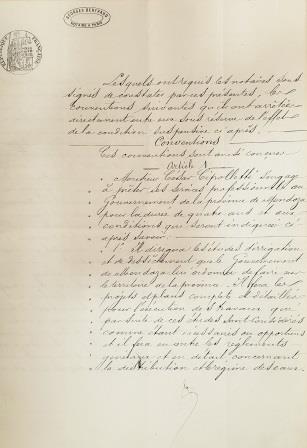 GEORGES BERTRAND
NOTAIRE A PARIS
Lesquels ont requis les notaires sous
signés de constater par ces présentes, les
conventions suivantes qu'ils ont arrêtées
directement entre eux sous réserve de l'effet
de la condition suspensive ci après.
Conventions
Ces conventions sont ainsi conçues
Article 1
Monsieur César Cipolletti s'engage
à prêter ses services professionnels au
Gouvernement de la province de Mendoza
pour la durée de quatre ans et aux
conditions qui seront indiquées ci
après savoir
1° Il dirigera les études d'irrigation
et de dessèchement que le Gouvernement
de Mendoza lui ordonne de faire sur
le territoire de la province. Il fera les
projets et plans complets et détaillés
pour l'exécution des travaux qui
par suite de ces études sont considérés
comme étant nécessaires ou opportuns
et il fera en outre les règlements
généraux et en détail concernant
la distribution et régime des eaux.